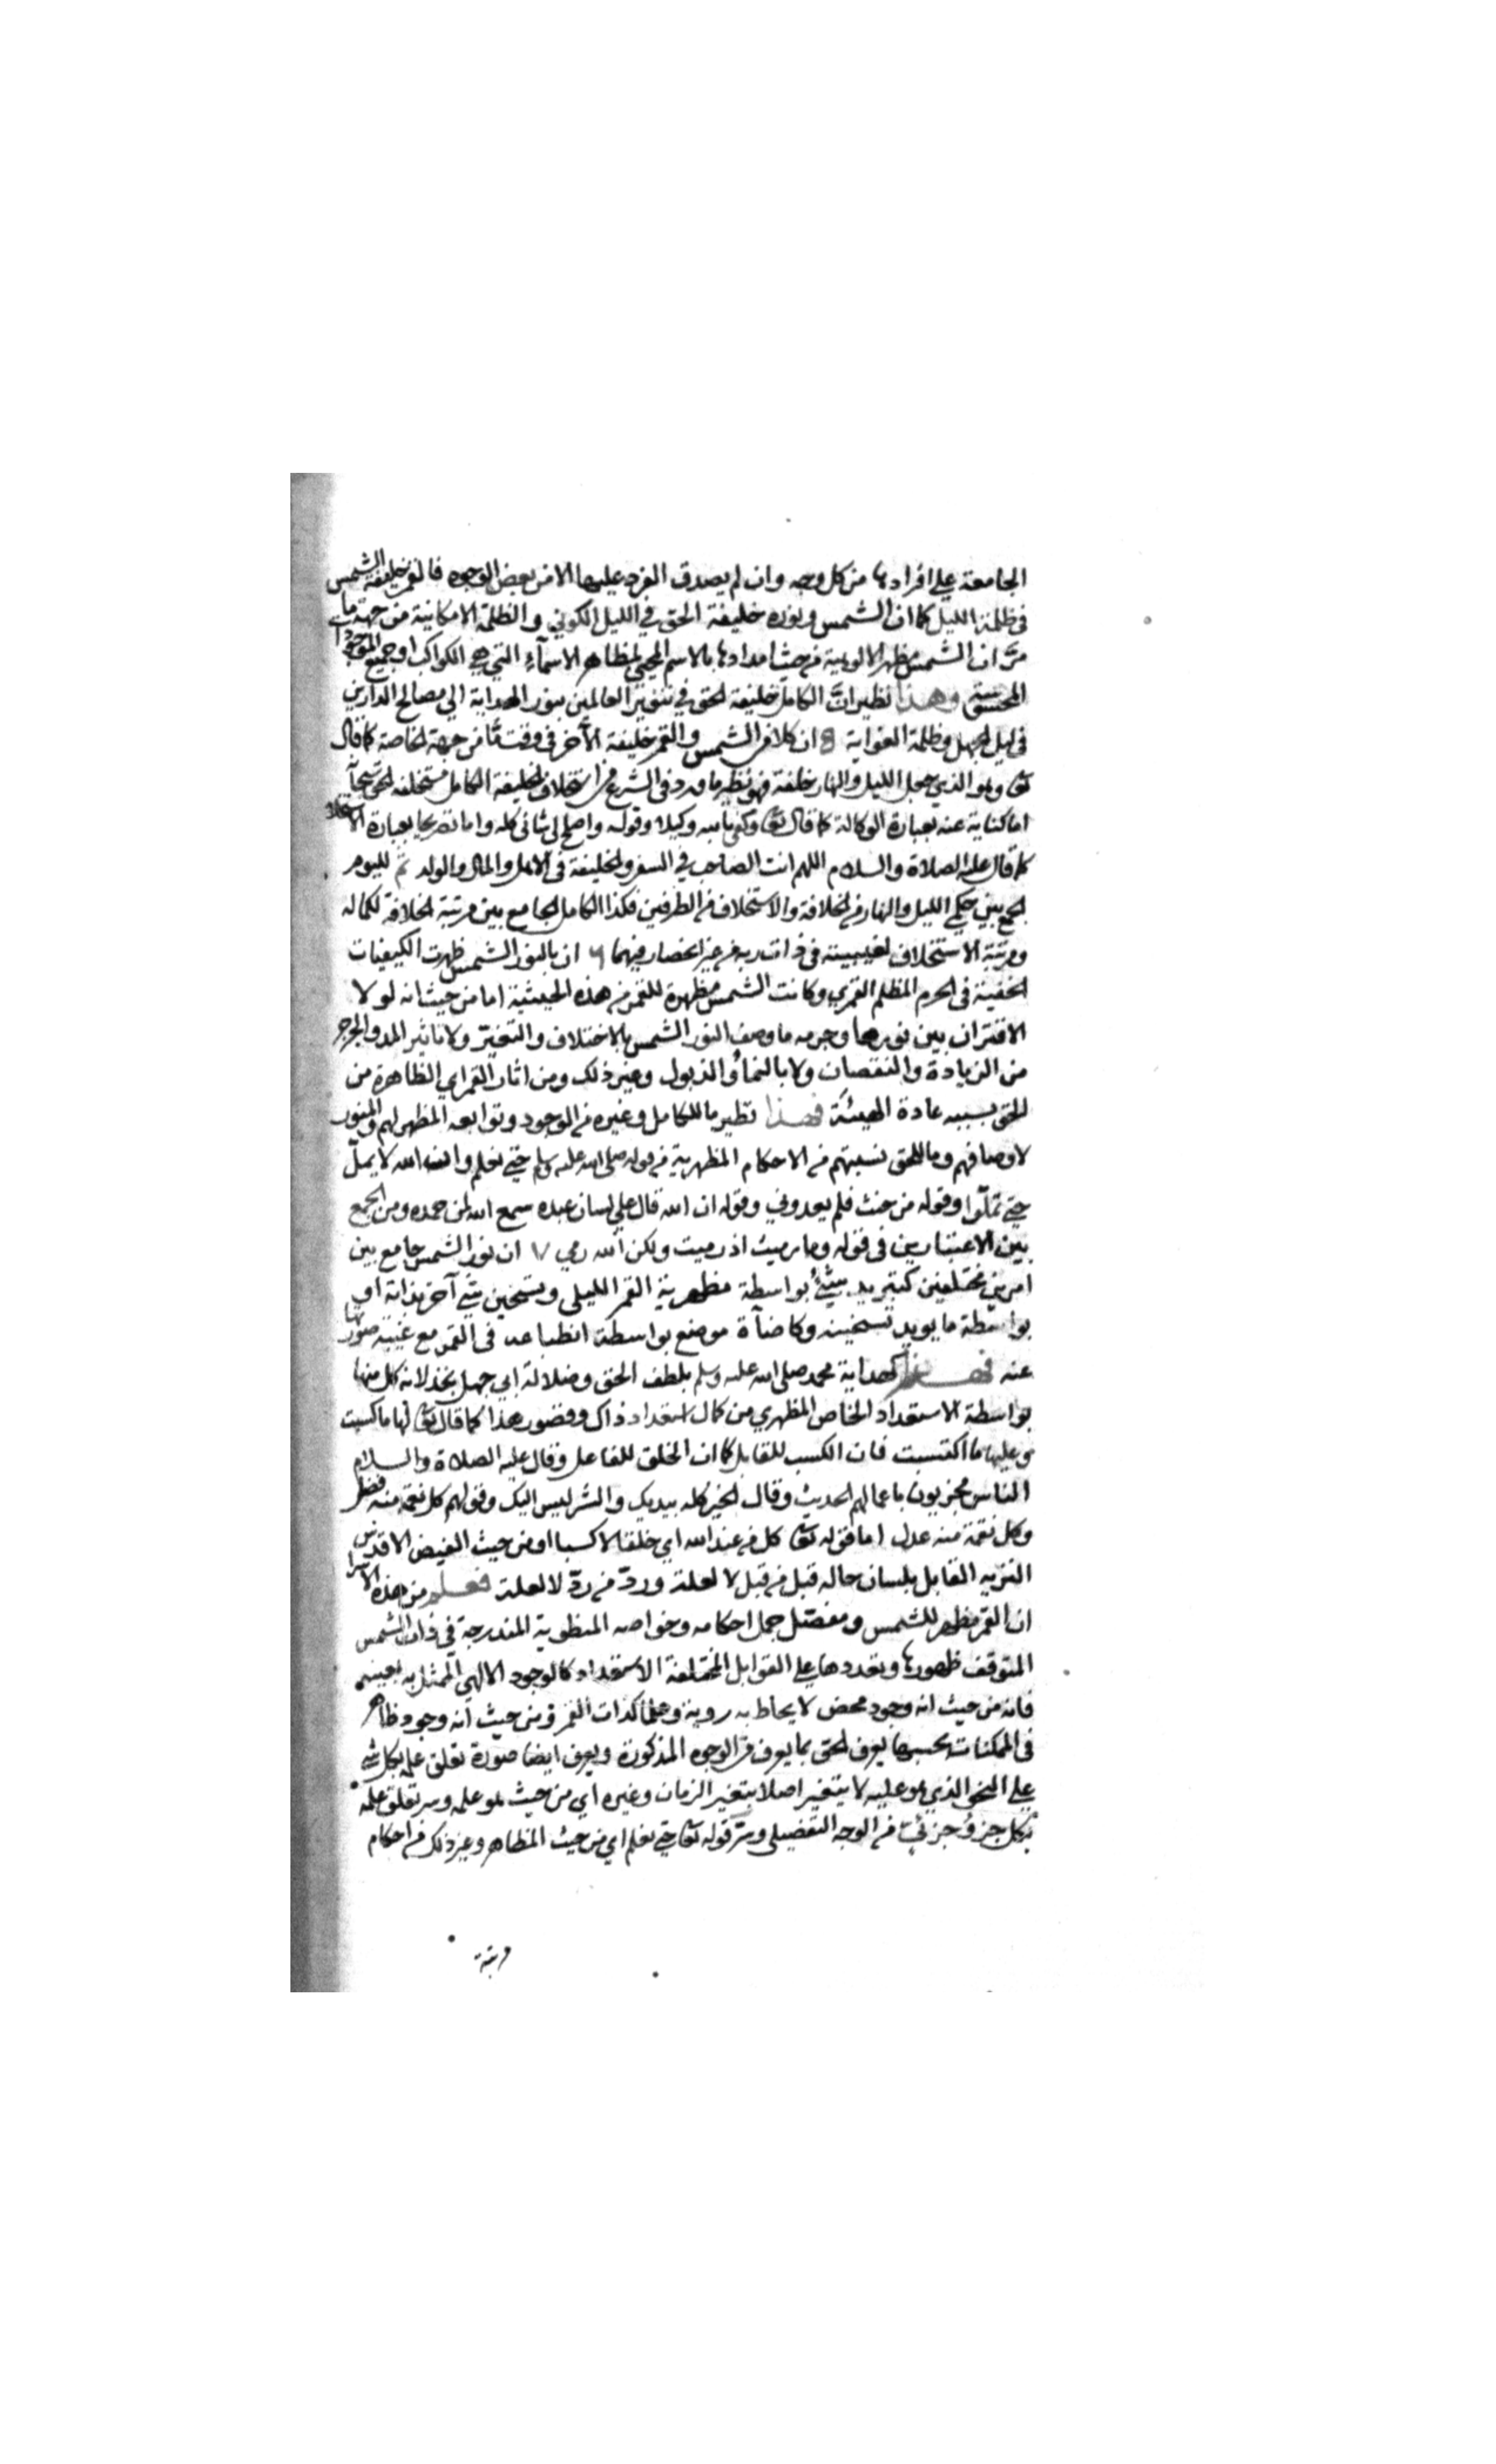 الجامعة علي افرادها من كل وجه وان لم يصدق الفرد عليها الا من بعض الوجوه فالقمر خليفة الشمس
في ظلمة الليل كما ان الشمس ونوره خليفة الحق في الليل الكوني والظلمة الامكانية من جهة ما
مرّ ان الشمس مظهر الالوهية من حيث امدادها بالاسم المحيي لمظاهر الاسمآء التي هي الكواكب او جميع الموجودات
المحسوسة وهذا نظير انّ الكامل خليفة الحق في تنوير العالمين بنور الهداية الي مصالح الدارين
في ليل الجهل وظلمة الغواية ٥ ان كلا من الشمس والقمر خليفة الآخر في وقت مّا من جهته الخاصة كما قال
تعا وهو الذي جعل الليل والنهار خلفة فهو نظير ما ورد في الشرع من استخلاف الخليفة الكامل مستخلفه الحق
اما كناية عنه بعبارة الوكالة كما قال تعا وكفي بالله وكيلا وقوله واصلح لي شاني كله واما تصريحا بعبارة الاستخلاف
كما قال عليه الصلاة والسلام اللهم انت الصاحب في السفر والخليفة في الاهل والمال والولد ثم لليوم
الجمع بين حكمي الليل والنهار من الخلافة والاستخلاف من الطرفين فكذا الكامل الجامع بين مرتبة الخلافة لكماله
ومرتبة الاستخلاف لغيبيته في ذات ربه من غير انحصار فيهما ٦ ان بالنور الشمس ظهرت الكيفيات
الخفية في الجرم المظلم القمري وكانت الشمس مظهرة للقمر من هذه الحيثية اما من حيث انه لولا
الاقتران بين نورها وجرمه ما وصف النور الشمس بالاختلاف والتغيّر ولا تاثير المد والجزر
من الزيادة والنقصان ولا بالنمآء والذبول وغير ذلك ومن اثار القمر اي الظاهرة من
الحق بسببه عادة الهيئة فهذا نظير ما للكامل وغيره من الوجود وتوابعه المظهر لهم والمنور
لاوصافهم وما للحق بنسبتهم من الاحكام المظهرية من قوله صلي الله عليه وسلم حتي نعلم وان الله لا يملّ
حتي تملّوا وقوله مرضت فلم تعدوني وقوله ان الله قال علي لسان عبده سمع الله لمن حمده ومن الجمع
بين الاعتبارين في قوله وما رميت اذ رميت ولكن الله رمي ٧ ان نور الشمس جامع بين
امرين مختلفين كتبريد شئ بواسطة مظهرية القمر الليلي وتسخين شئ آخر بذاته او
بواسطة ما يويد تسخينه وكاضآة موضع بواسطة انطباعه في القمر مع غيبة صورتها
عنه فهذا كهداية محمد صلي الله عليه وسلم بلطف الحق وضلالة ابي جهل بخذلانه كل منها
بواسطة الاستعداد الخاص المظهري من كمال استعداد ذاك وقصور هذا كما قال تعا لها ما كسبت
وعليها ما اكتسبت فان الكسب للقابل كما ان الخلق للفاعل وقال عليه الصلاة والسلام
الناس مجزيون باعمالهم الحديث وقال الخير كله بيديك والشر ليس اليك وقولهم كل نعمة منه فضل
وكل نقمة منه عدل اما قوله تعا كل من عند الله اي خلقا لا كسبا او من حيث الفيض الاقدس
القابل بلسان حاله قبل من قبل لا لعلة وردّ من ردّ لا لعلة فعلم من هذه الاسرار
ان القمر مظهر للشمس ومفصّل جمل احكامه وخواصه المنطوية المندرجة في ذات الشمس
المتوقف ظهورها وتعددها علي القوابل المختلفة الاستعداد كالوجود الالهي الممثل به بعينه
فانه من حيث انه وجود محض لا يحاط به روية وعلما كذات القمر ومن حيث انه وجود ظاهر
في الممكنات بحسبها يعرف الحق بما يعرف من الوجوه المذكورة ويعرف ايضا صورة تعلق علمه بكل شي
علي النحو الذي هو عليه لا يتغير اصلا بتغير الزمان وغيره اي من حيث هو علمه وسر تعلق علمه
بكل جزء وجزئي من الوجه التفصيلي وسرّ قوله تعا حتي نعلم اي من حيث المظاهر وغير ذلك من احكام
مرتبة